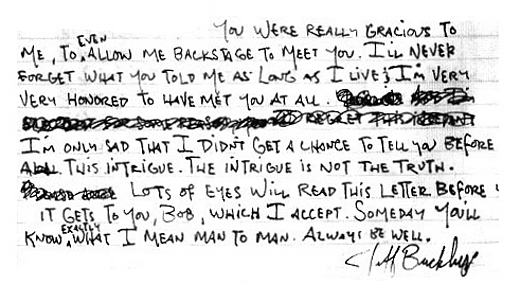 YOU WERE REALLY GRACIOUS TO
ME, TO EVEN ALLOW ME BACKSTAGE TO MEET YOU. I'LL NEVER
FORGET WHAT YOU TOLD ME AS LONG AS I LIVE & I'M VERY
VERY HONORED TO HAVE MET YOU AT ALL.
REGRET THIS
I'M ONLY SAD THAT I DIDN'T GET A CHANCE TO TELL YOU BEFORE
ALL THIS INTRIGUE. THE INTRIGUE IS NOT THE TRUTH.
LOTS OF EYES WILL READ THIS LETTER BEFORE
IT GETS TO YOU, BOB, WHICH I ACCEPT. SOMEDAY YOU'LL
KNOW EXACTLY WHAT I MEAN MAN TO MAN. ALWAYS BE WELL.
Jeff Buckley